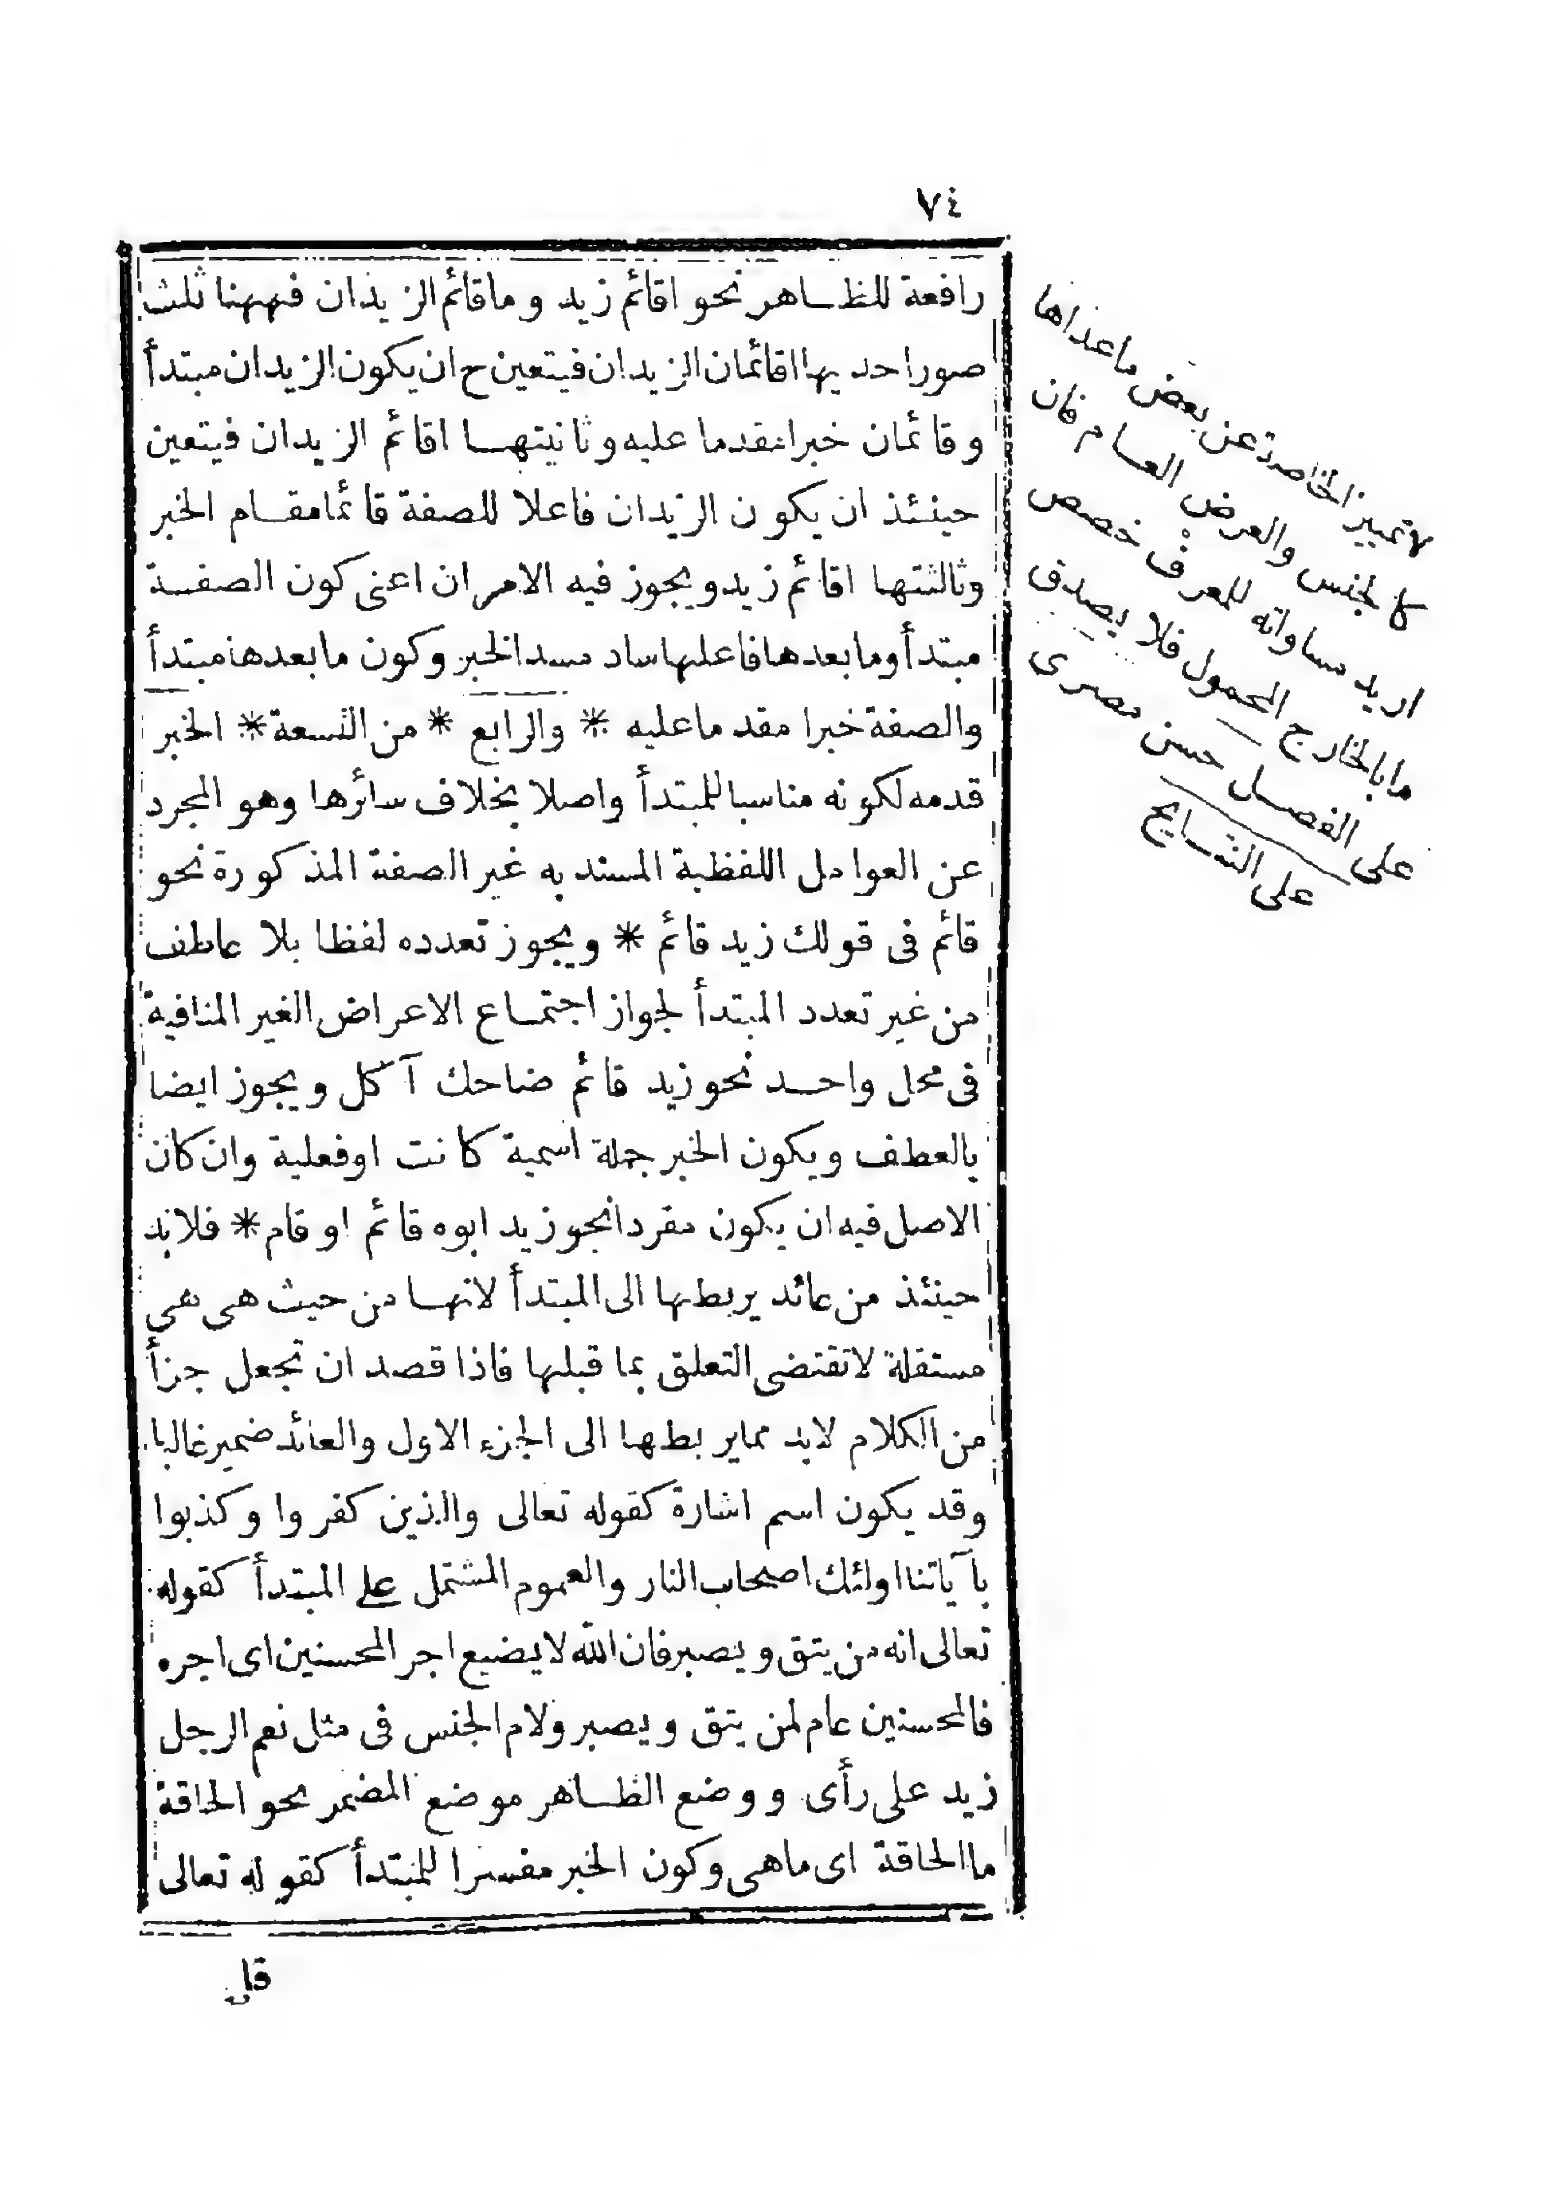 ٧٤
رافعة للظاهر نحو اقائم زيد وماقائم الزيدان فههنا ثلث
صور احديها اقائمان الزيدان فيتعين ح ان يكون الزيدان مبتدأ
وقائمان خبرا مقدما عليه وثانيتها اقائم الزيدان فيتعين
حينئذ ان يكون الزيدان فاعلا للصفة قائما مقام الخبر
وثالثتها اقائم زيد ويجوز فيه الامران اعنى كون الصفة
مبتدأ وما بعدها فاعلها ساد مسد الخبر وكون مابعدها مبتدأ
والصفة خبرا مقدما عليه * والرابع * من التسعة * الخبر
قدمه لكونه مناسبا للمبتدأ واصلا بخلاف سائرها وهو المجرد
عن العوامل اللفظية المسند به غير الصفة المذكورة نحو
قائم فى قولك زيد قائم * ويجوز تعدده لفظا بلا عاطف
من غير تعدد المبتدأ لجواز اجتماع الاعراض الغير المنافية
فى محل واحد نحو زيد قائم ضاحك آكل ويجوز ايضا
بالعطف ويكون الخبر جملة اسمية كانت اوفعلية وان كان
الاصل فيه ان يكون مفردا نحو زيد ابوه قائم او قام * فلابد
حينئذ من عائد يربطها الى المبتدأ لانها من حيث هى هى
مستقلة لاتقتضى التعلق بما قبلها فاذا قصد ان تجعل جزأ
من الكلام لابد مما يربطها الى الجزء الاول والعائد ضمير غالبا
وقد يكون اسم اشارة كقوله تعالى والذين كفروا وكذبوا
بآياتنا اولئك اصحاب النار والعموم المشتمل على المبتدأ كقوله
تعالى انه من يتق ويصبر فان الله لايضيع اجر المحسنين اى اجره
فالمحسنين عام لمن يتق ويصبر ولام الجنس فى مثل نعم الرجل
زيد على رأى ووضع الظاهر موضع المضمر نحو الحاقة
ما الحاقة اى ماهى وكون الخبر مفسرا للمبتدأ كقوله تعالى
لا تمييز الخاصة عن بعض ماعداها
كالجنس والعرض العام فان
اريد مساواته للمعرف خصص
ما بالخارج المحمول فلا يصدق
على الفصل حسن مصرى
على النتايج